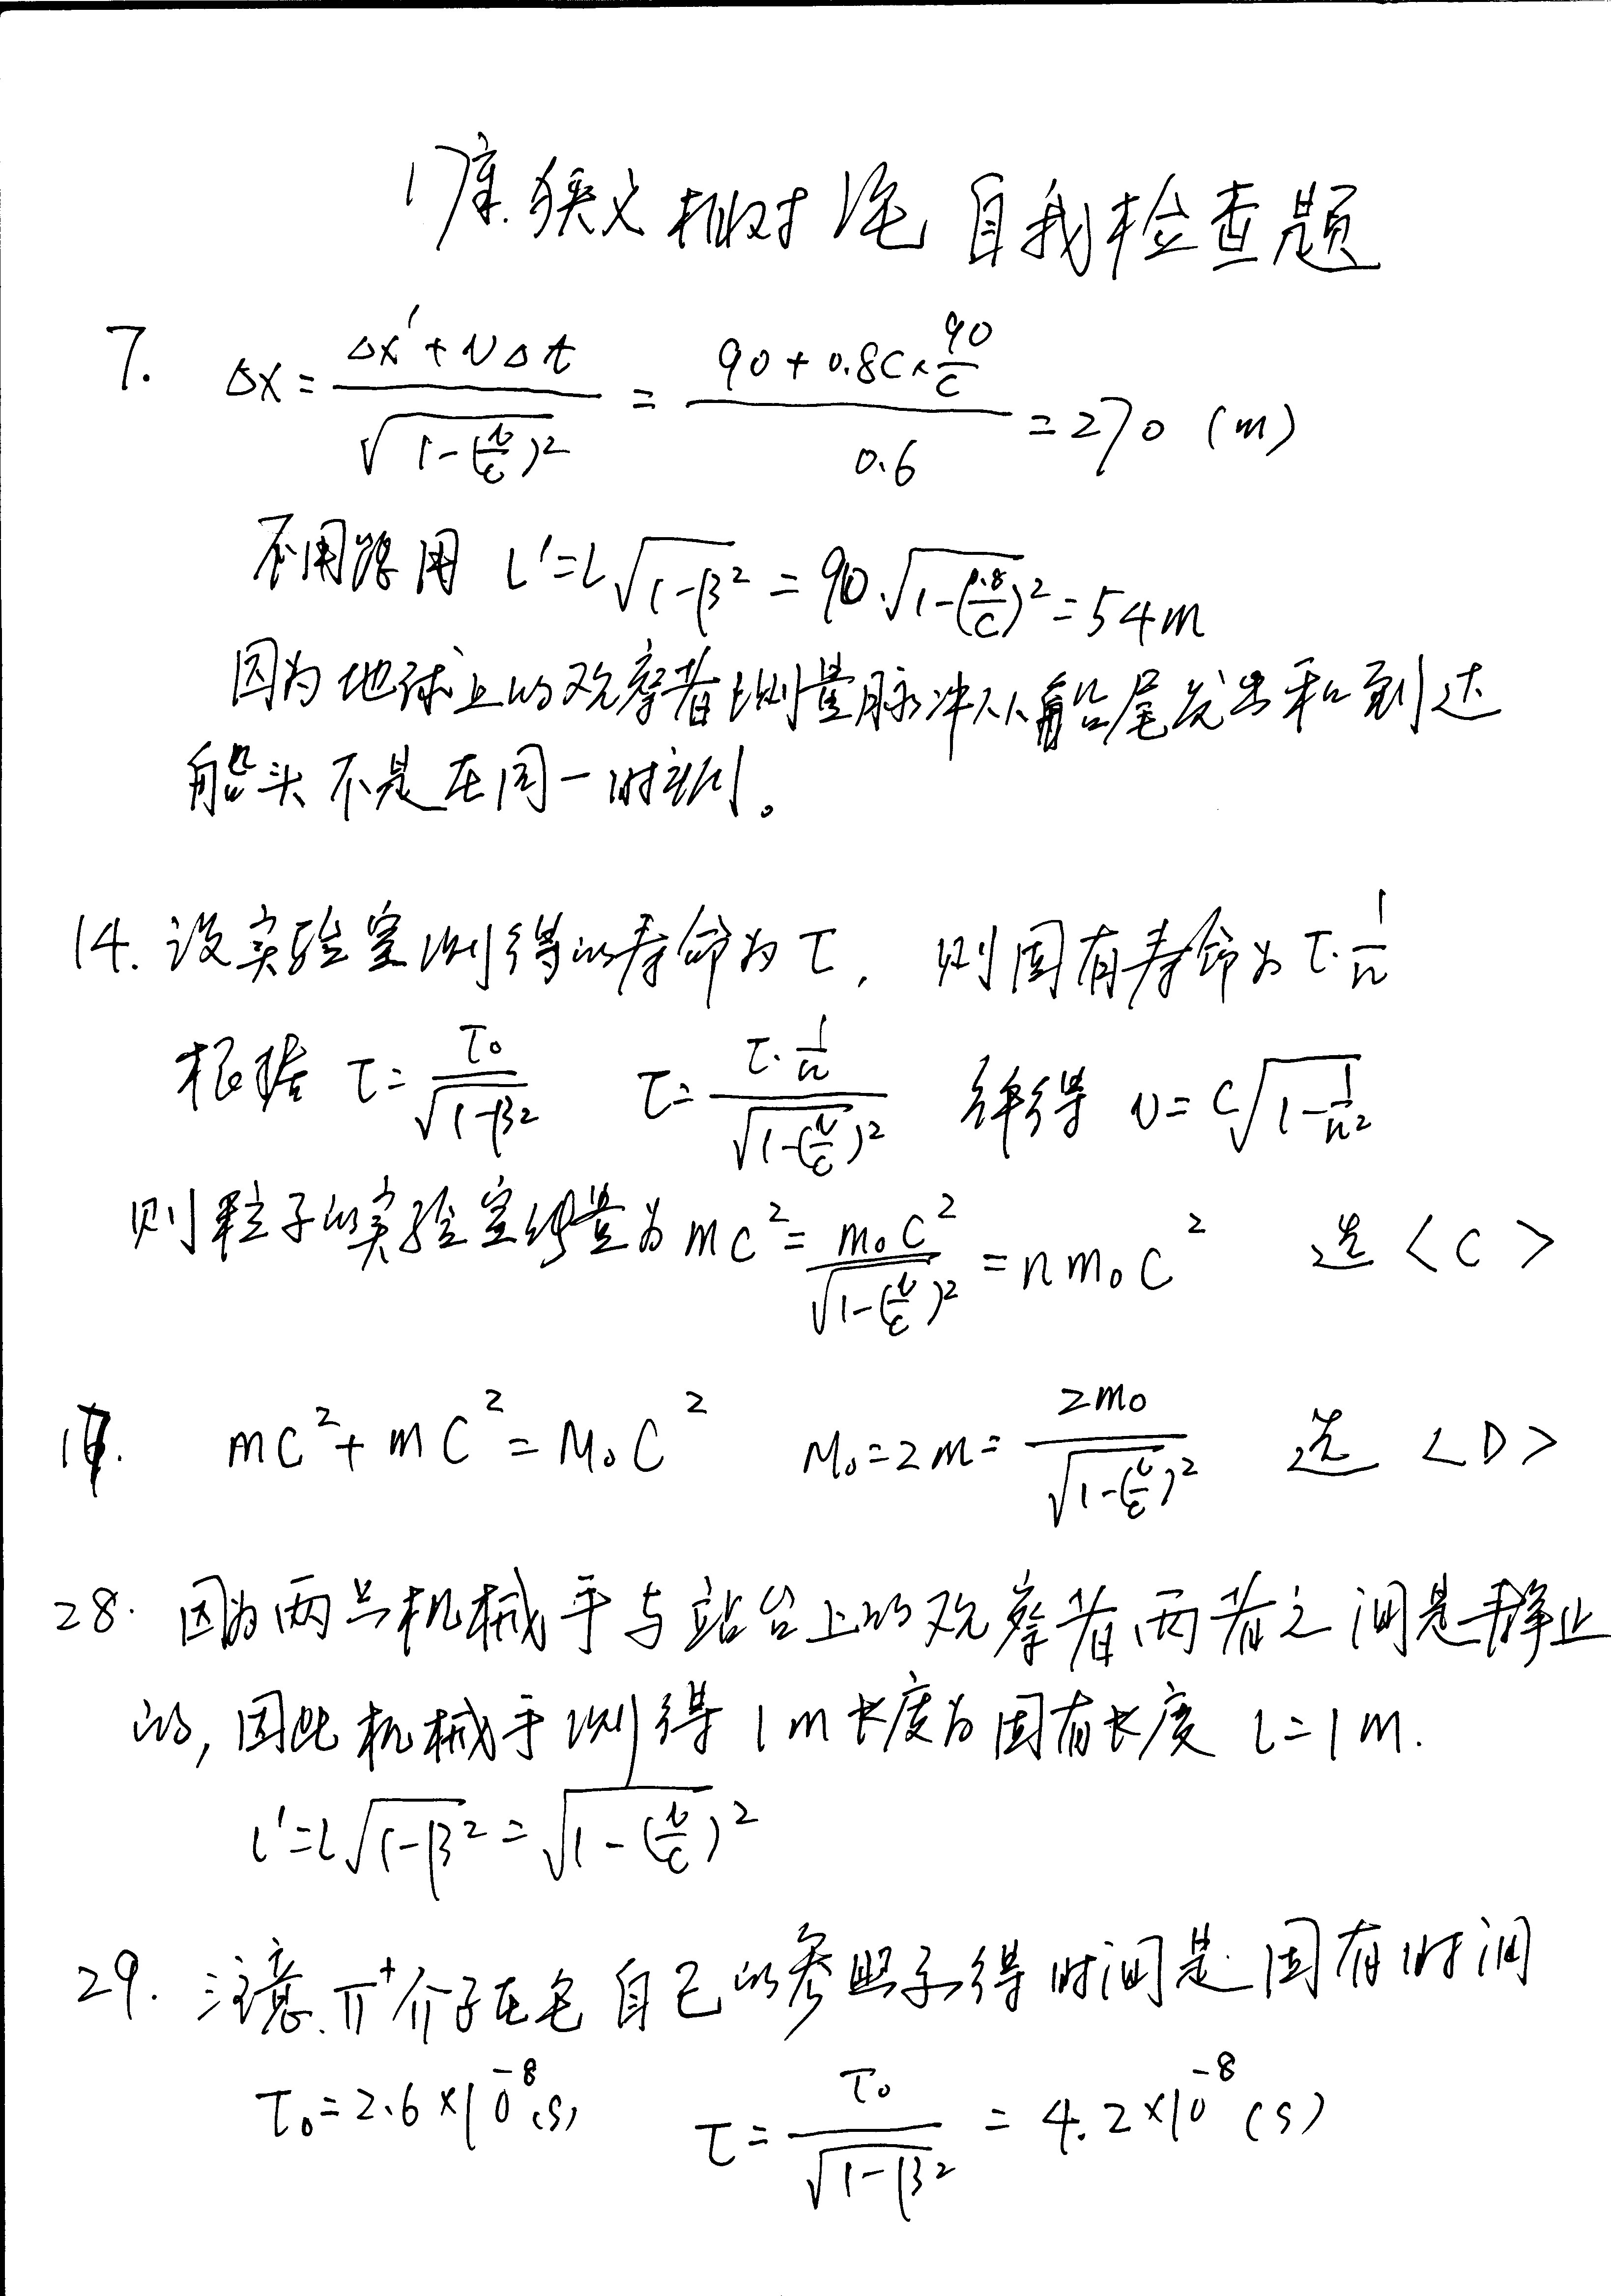 17章.狭义相对论 自我检查题
7. Δx = (Δx' + vΔt) / √(1-(v/c)²) = (90 + 0.8c × 90/c) / 0.6 = 270 (m)
不用 用 l' = l√(1-β²) = 90·√(1-(0.8/c)²) = 54m
因为地球上的观察者测量脉冲从船尾发出和到达
船头不是在同一时刻。
14. 设实验室测得的寿命为τ, 则固有寿命为τ·1/n
根据 τ = τ₀/√(1-β²) τ = (τ·1/n)/√(1-(v/c)²) 解得 v = c√(1-1/n²)
则粒子的实验室能量为 mc² = m₀c²/√(1-(v/c)²) = nm₀c² 选<C>
mc² + mc² = M₀c² M₀ = 2m = 2m₀/√(1-(v/c)²) 选 <D>
28. 因为两只机械手与站台上的观察者两者之间是静止
的, 因此机械手测得 1m 长度为固有长度 l = 1m.
l' = l√(1-β²) = √(1-(v/c)²)
29. 注意.π⁺介子在它自己的参照系得时间是固有时间
τ₀ = 2.6×10⁻⁸(s) τ = τ₀/√(1-β²) = 4.2×10⁻⁸ (s)